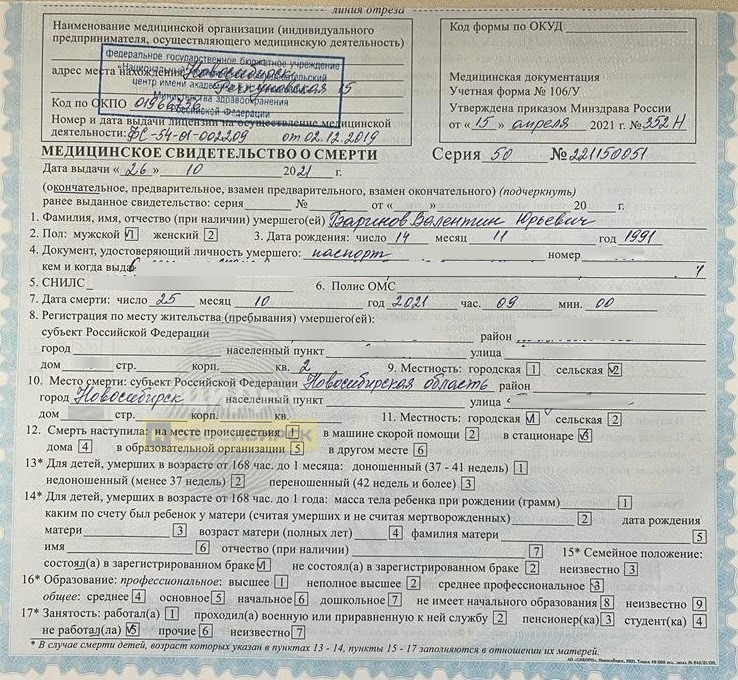 линия отреза
Наименование медицинской организации (индивидуального
предпринимателя, осуществляющего медицинскую деятельность)
Федеральное государственное бюджетное учреждение
адрес места нахождения Новосибирск
центр имени Речкуновская 15
Министерства здравоохранения
Код по ОКПО
Российской Федерации
Номер и дата выдачи лицензии на осуществление медицинской
деятельности: ФС-54-01-002209 от 02.12.2019
Код формы по ОКУД
Медицинская документация
Учетная форма № 106/У
Утверждена приказом Минздрава России
от « 15 » апреля 2021 г. № 352Н
МЕДИЦИНСКОЕ СВИДЕТЕЛЬСТВО О СМЕРТИ
Серия 50 № 221150051
Дата выдачи « 26 » 10 2021 г.
(окончательное, предварительное, взамен предварительного, взамен окончательного) (подчеркнуть)
ранее выданное свидетельство: серия № от « » 20 г.
1. Фамилия, имя, отчество (при наличии) умершего(ей) Баринов Валентин Юрьевич
2. Пол: мужской 1 женский 2 3. Дата рождения: число 14 месяц 11 год 1991
4. Документ, удостоверяющий личность умершего: паспорт номер
кем и когда выдан
5. СНИЛС 6. Полис ОМС
7. Дата смерти: число 25 месяц 10 год 2021 час. 09 мин. 00
8. Регистрация по месту жительства (пребывания) умершего(ей):
субъект Российской Федерации район
город населенный пункт улица
дом стр. корп. кв. 2 9. Местность: городская 1 сельская 2
10. Место смерти: субъект Российской Федерации Новосибирская область район
город Новосибирск населенный пункт улица
дом стр. корп. кв. 11. Местность: городская 1 сельская 2
12. Смерть наступила: на месте происшествия 1 в машине скорой помощи 2 в стационаре 3
НОВОСИБИРСК
дома 4 в образовательной организации 5 в другом месте 6
13* Для детей, умерших в возрасте от 168 час. до 1 месяца: доношенный (37 - 41 недель) 1
недоношенный (менее 37 недель) 2 переношенный (42 недель и более) 3
14* Для детей, умерших в возрасте от 168 час. до 1 года: масса тела ребенка при рождении (грамм) 1
каким по счету был ребенок у матери (считая умерших и не считая мертворожденных) 2 дата рождения
матери 3 возраст матери (полных лет) 4 фамилия матери 5
имя 6 отчество (при наличии) 7 15* Семейное положение:
состоял(а) в зарегистрированном браке 1 не состоял(а) в зарегистрированном браке 2 неизвестно 3
16* Образование: профессиональное: высшее 1 неполное высшее 2 среднее профессиональное 3
общее: среднее 4 основное 5 начальное 6 дошкольное 7 не имеет начального образования 8 неизвестно 9
17* Занятость: работал(а) 1 проходил(а) военную или приравненную к ней службу 2 пенсионер(ка) 3 студент(ка) 4
не работал(ла) 5 прочие 6 неизвестно 7
* В случае смерти детей, возраст которых указан в пунктах 13 - 14, пункты 15 - 17 заполняются в отношении их матерей.